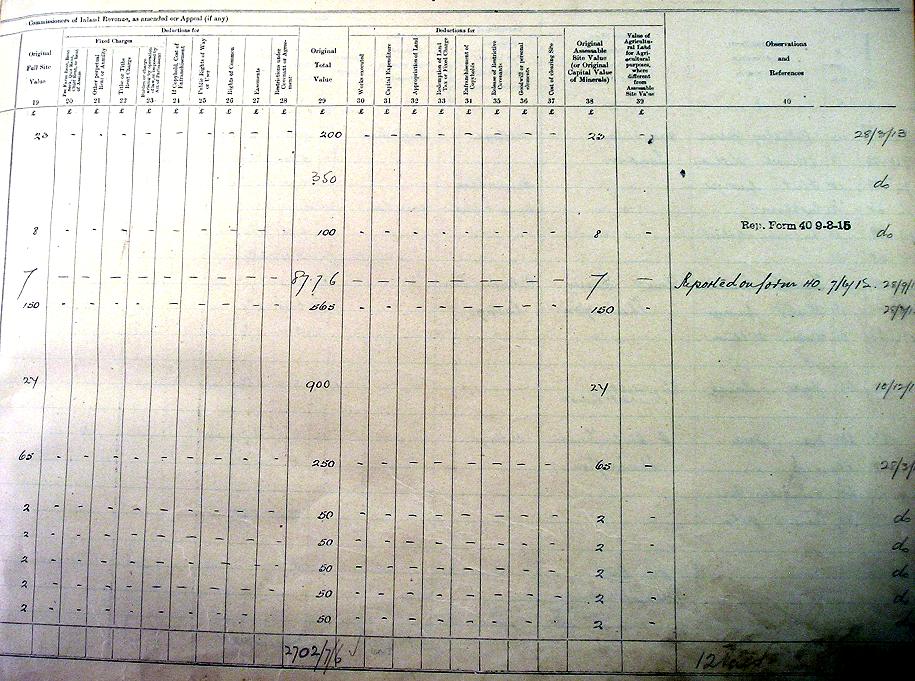 Commissioners of Inland Revenue, as amended on Appeal (if any)
Deductions for
Deductions for
Fixed Charges
Original Full Site Value
Other perpetual Rent or Annuity
Tithe or Tithe Rent Charge
If Copyhold, Cost of Enfranchisement
Public Rights of Way or User
Rights of Common
Easements
Restrictions under Covenant or Agreement
Original Total Value
Works executed
Capital Expenditure
Appropriation of Land
Redemption of Land Tax or Fixed Charge
Enfranchisement of Copyholds
Release of Restrictive Covenants
Goodwill or personal elements
Cost of clearing Site
Original Assessable Site Value (or Original Capital Value of Minerals)
Value of Agricultural Land for Agricultural purposes, where different from Assessable Site Value
Observations and References
19 20 21 22 23 24 25 26 27 28 29 30 31 32 33 34 35 36 37 38 39 40
£ £ £ £ £ £ £ £ £ £ £ £ £ £ £ £ £ £ £ £ £
23 - - - - - - - - - 200 - - - - - - - - 23 - 28/3/13
350 do
8 - - - - - - - - - 100 - - - - - - - - 8 - Rep. Form 40 9-8-15 do
7 - - - - - - - - - 87.7.6 - - - - - - - - 7 - Reported on form 40.
150 - - - - - - - - - 565 - - - - - - - - 150 -
24 900 24 10/12/1
65 - - - - - - - - - 250 - - - - - - - - 65 - 28/3/
2 - - - - - - - - - 50 - - - - - - - - 2 - do
2 - - - - - - - - - 50 - - - - - - - - 2 - do
2 - - - - - - - - - 50 - - - - - - - - 2 - do
2 - - - - - - - - - 50 - - - - - - - - 2 - do
2 - - - - - - - - - 50 - - - - - - - - 2 -
2702/7/6 12